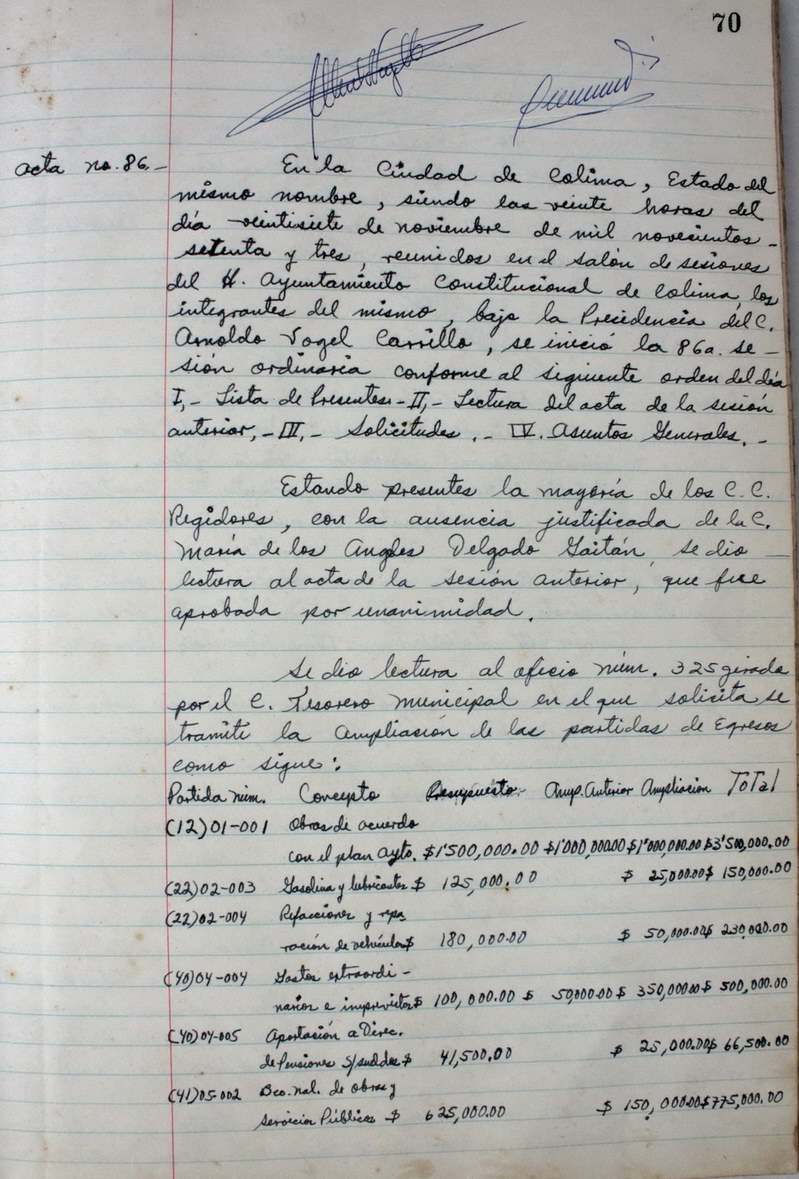 70
acta no. 86.-
En la Ciudad de Colima, Estado del
mismo nombre, siendo las veinte horas del
día veintisiete de noviembre de mil novecientos -
setenta y tres, reunidos en el salón de sesiones
del H. Ayuntamiento Constitucional de Colima, los
integrantes del mismo, bajo la Presidencia del C.
Arnoldo Vogel Carrillo, se inició la 86a. se -
sión ordinaria conforme al siguiente orden del día
I,- Lista de Presentes.- II,- Lectura del acta de la sesión
anterior,- III,- Solicitudes.- IV. Asuntos Generales.-
Estando presentes la mayoría de los C.C.
Regidores, con la ausencia justificada de la C.
María de los Angles Delgado Gaitán, se dio
lectura al acta de la sesión anterior, que fue
aprobada por unanimidad.
Se dio lectura al oficio núm. 325 girado
por el C. Tesorero Municipal en el que solicita se
tramite la Ampliación de las partidas de Egresos
como sigue:
Partida núm. Concepto Presupuesto Amp. Anterior Ampliación Total
(12)01-001 Obras de acuerdo
con el plan Ayto. $1'500,000.00 $1'000,000.00 $1'000,000.00 $3'500,000.00
(22)02-003 Gasolina y lubricantes $ 125,000.00 $ 25,000.00 $ 150,000.00
(22)02-004 Refacciones y repa
ración de vehículos $ 180,000.00 $ 50,000.00 $ 230,000.00
(40)04-004 Gastos extraordi -
narios e imprevistos $ 100,000.00 $ 50,000.00 $ 350,000.00 $ 500,000.00
(40)04-005 Aportación a Direc.
de Pensiones S/sueldos $ 41,500.00 $ 25,000.00 $ 66,500.00
(41)05-002 Bco. Nal. de Obras y
Servicios Públicos $ 625,000.00 $ 150,000.00 $ 775,000.00